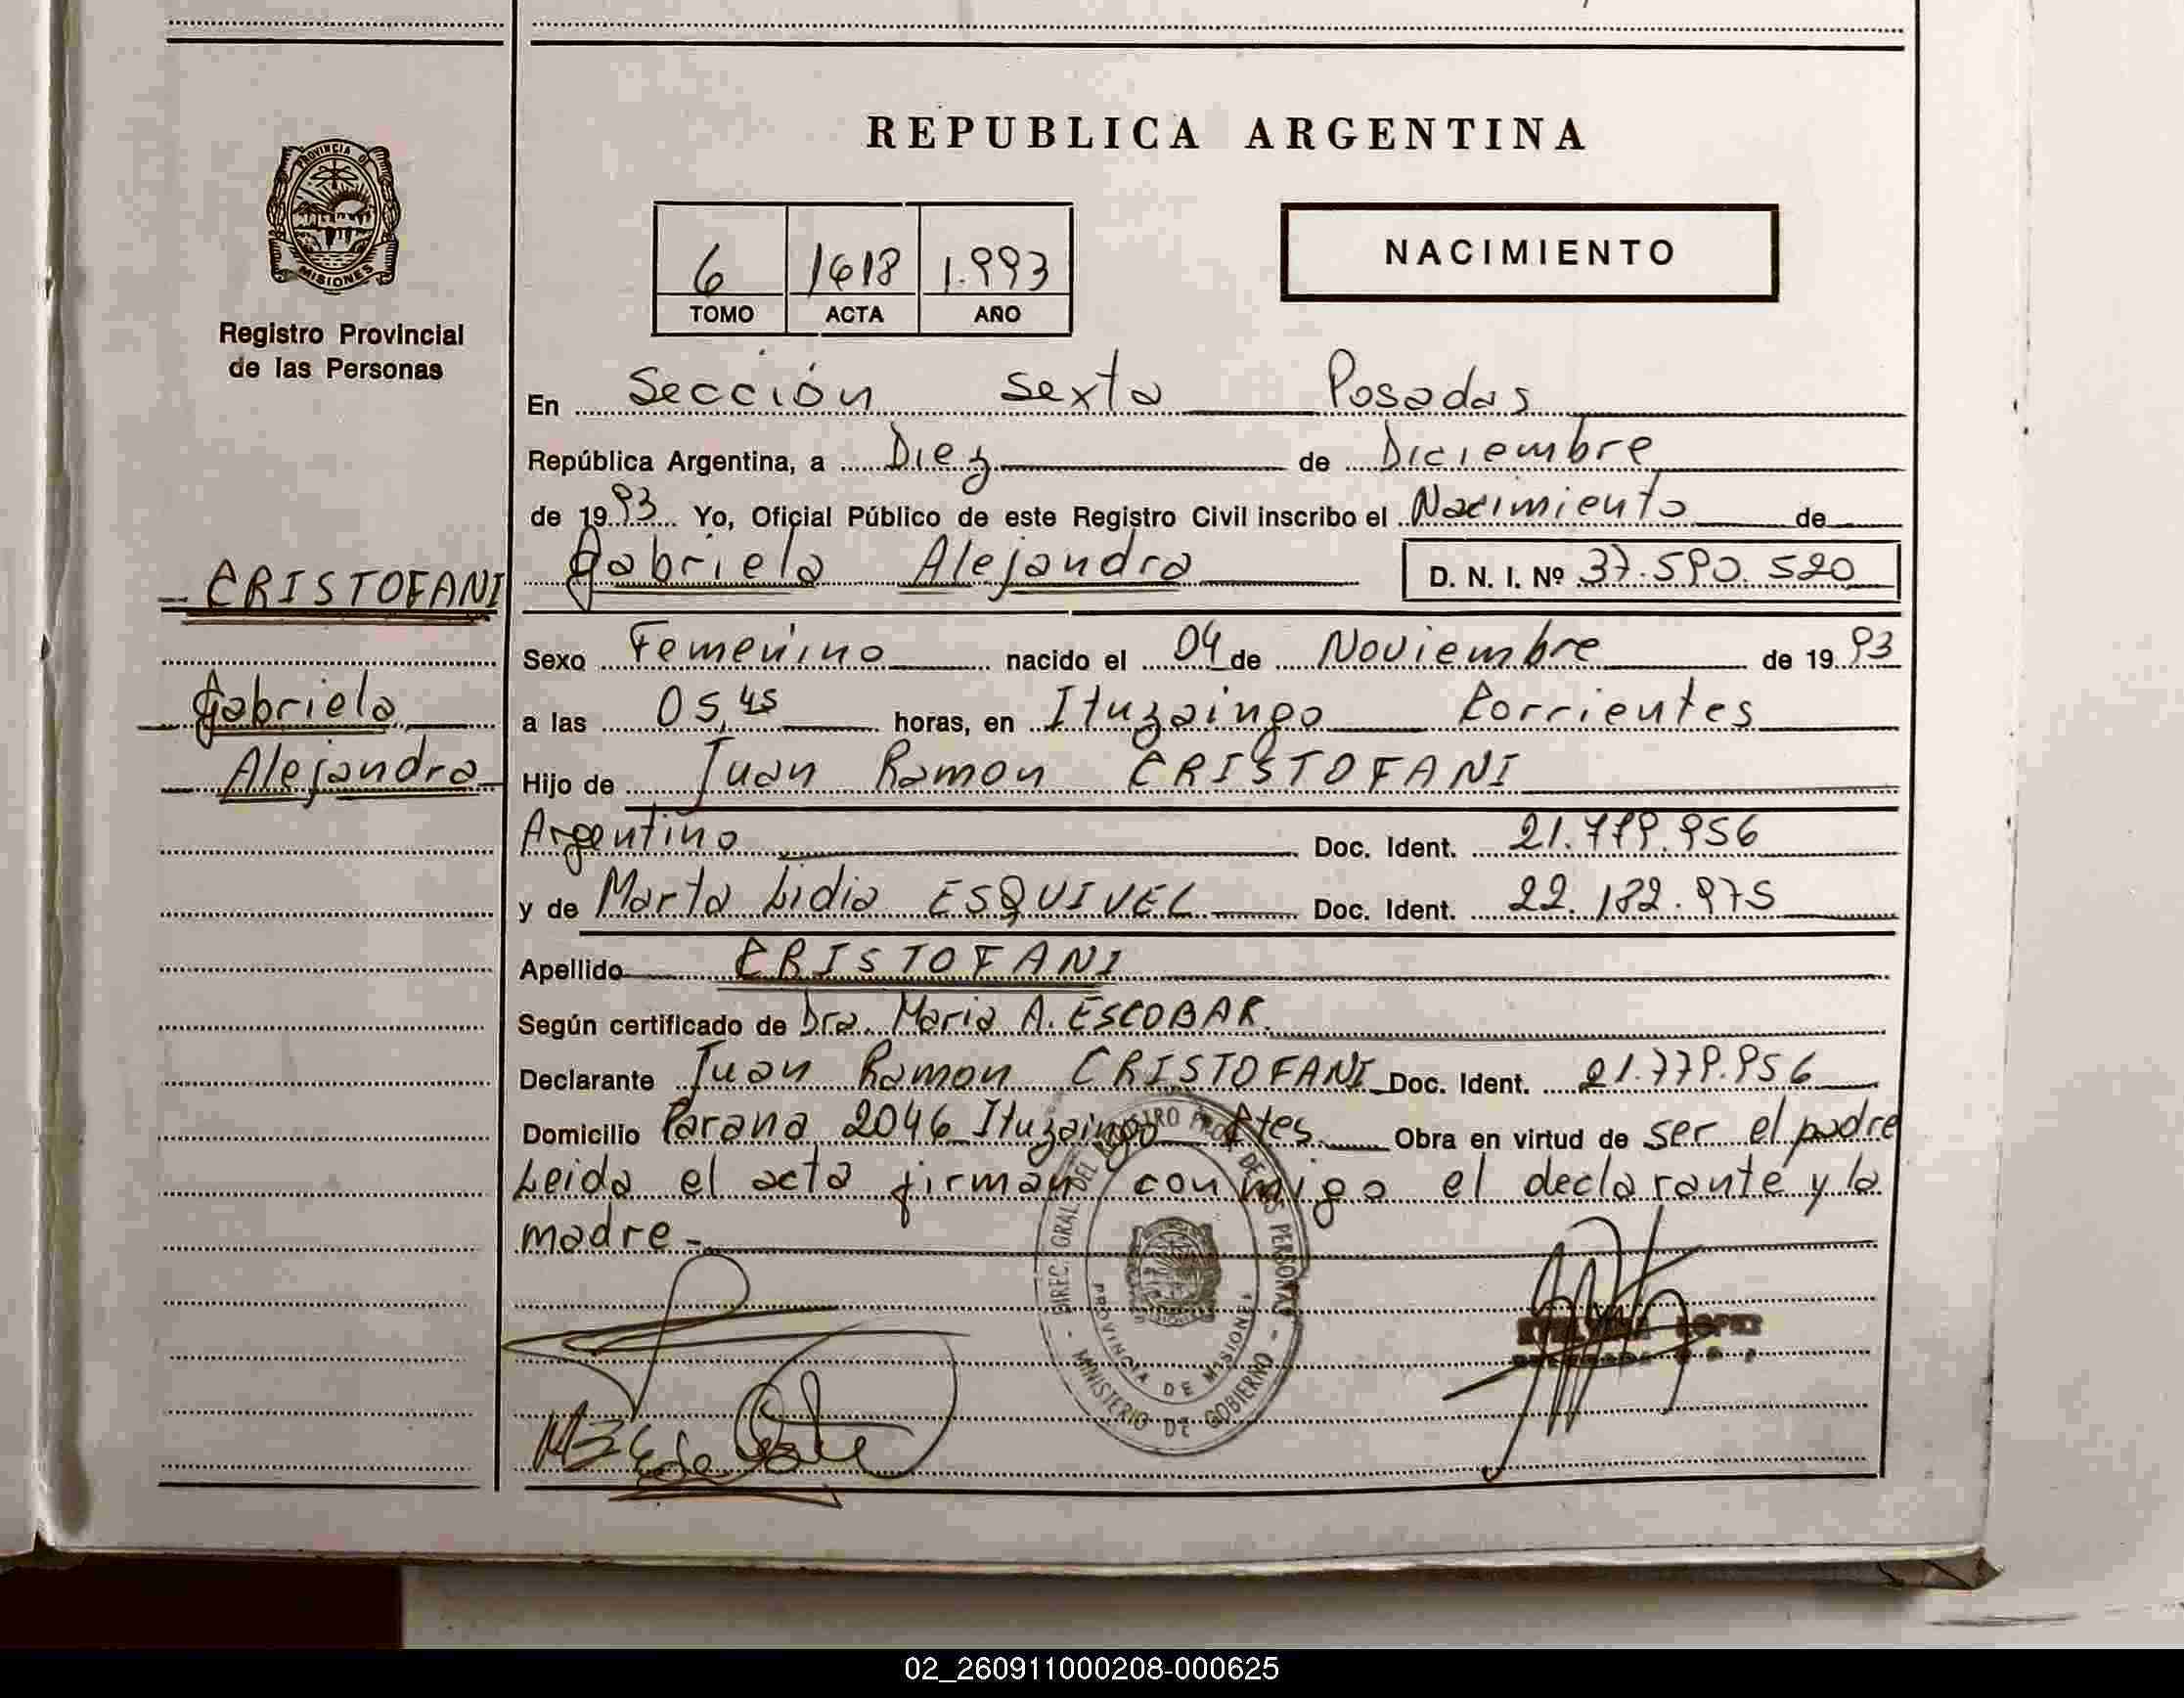 REPUBLICA ARGENTINA
PROVINCIA DE
MISIONES
Registro Provincial
de las Personas
6 1618 1.993
TOMO ACTA AÑO
NACIMIENTO
En Sección Sexta Posadas
República Argentina, a Diez de Diciembre
de 1993 Yo, Oficial Público de este Registro Civil inscribo el Nacimiento de
CRISTOFANI
Gabriela Alejandra D. N. I. Nº 37.590.520
Sexo Femenino nacido el 04 de Noviembre de 1993
Gabriela
a las 05,45 horas, en Ituzaingo Corrientes
Alejandra
Hijo de Juan Ramon CRISTOFANI
Argentino Doc. Ident. 21.779.956
y de Marta Lidia ESQUIVEL Doc. Ident. 22.182.975
Apellido CRISTOFANI
Según certificado de Dra. Maria A. ESCOBAR.
Declarante Juan Ramon CRISTOFANI Doc. Ident. 21.779.956
Domicilio Parana 2046 Ituzaingo Ctes. Obra en virtud de ser el padre
Leida el acta firman conmigo el declarante y la
madre -
DIREC. GRAL. DEL REGISTRO PROV. DE LAS PERSONAS
PROVINCIA DE MISIONES
- MINISTERIO DE GOBIERNO -
LOPEZ
02_260911000208-000625